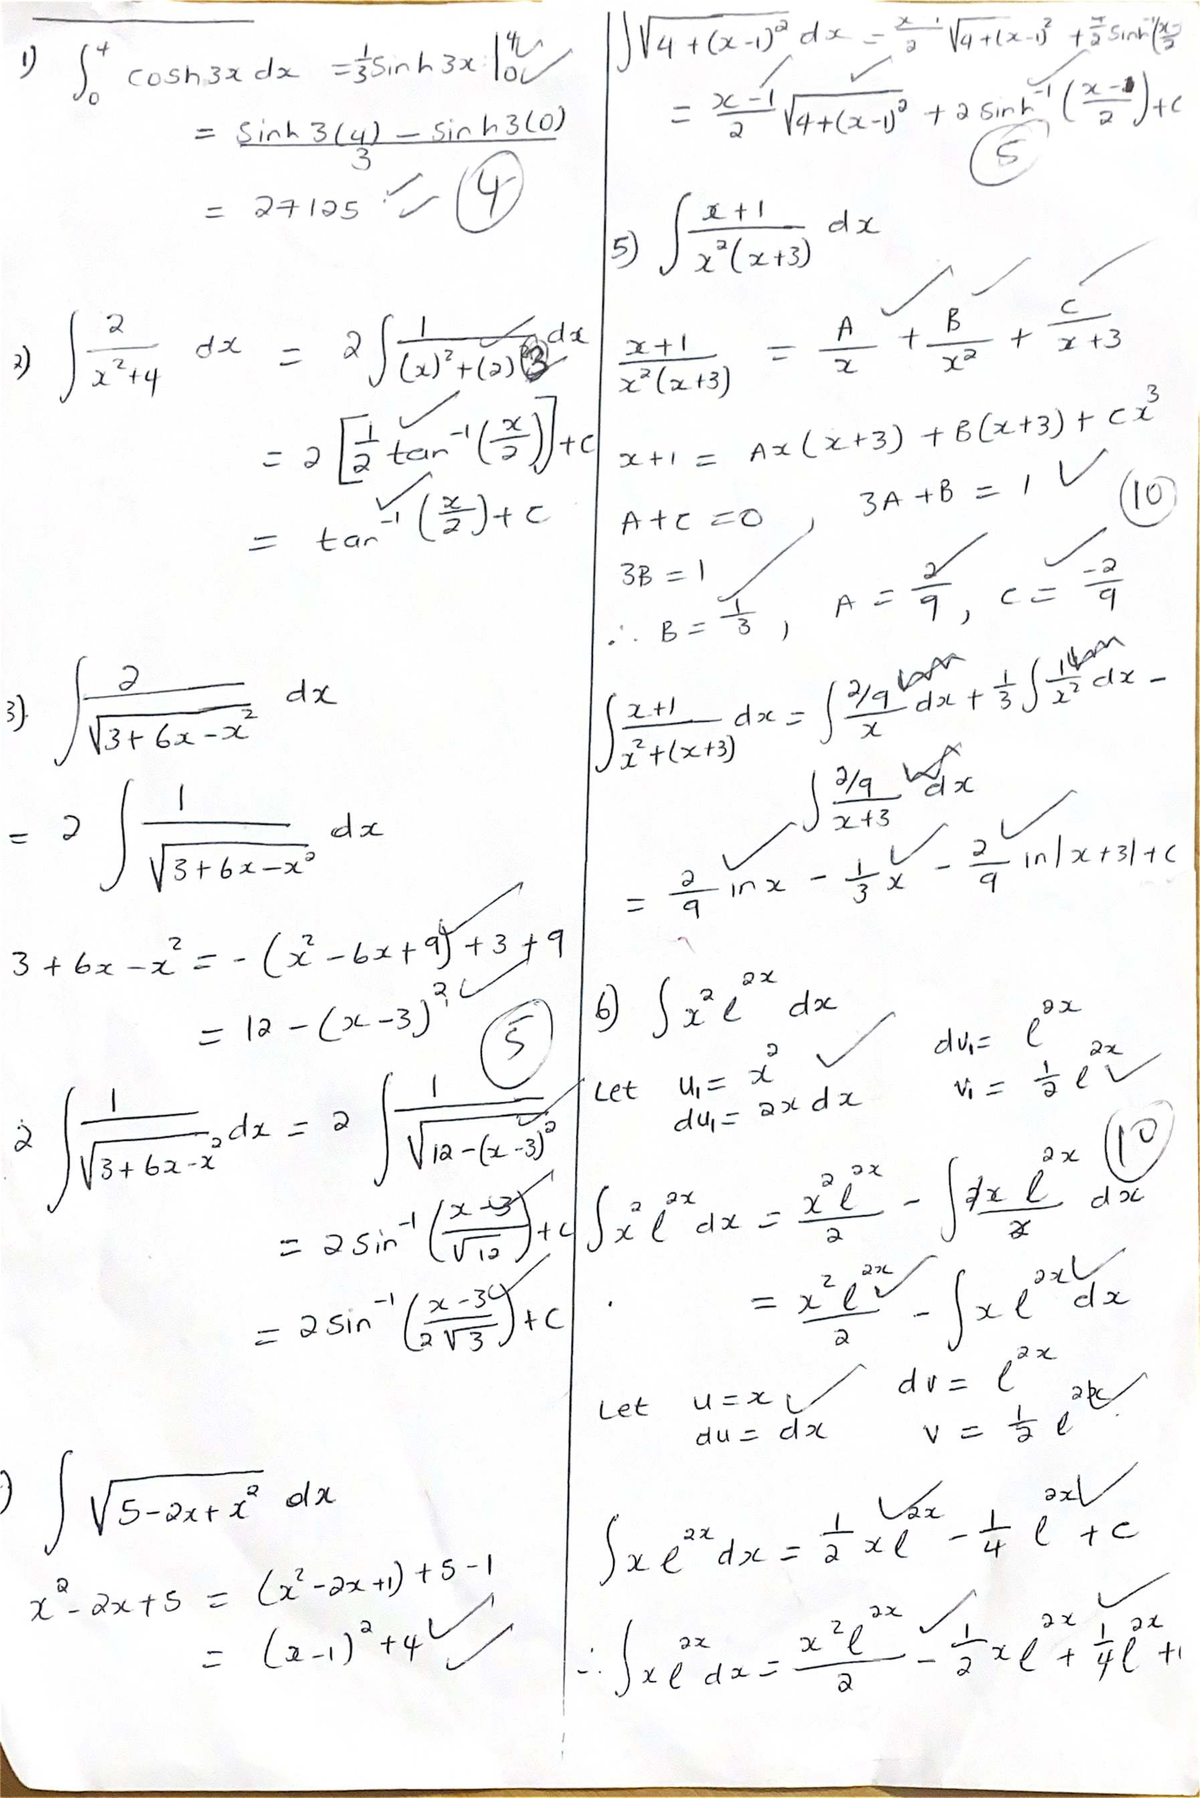 1) ∫₀⁴ cosh3x dx = 1/3 sinh3x |₀⁴
= (sinh3(4) - sinh3(0))/3
= 27125
4
2) ∫ 2/(x²+4) dx = 2 ∫ 1/((x)²+(2)²) dx
3
= 2 [1/2 tan⁻¹(x/2)] + c
= tan⁻¹(x/2) + c
3) ∫ 2/√(3+6x-x²) dx
= 2 ∫ 1/√(3+6x-x²) dx
3+6x-x² = -(x²-6x+9) + 3 + 9
= 12-(x-3)²
5
2 ∫ 1/√(3+6x-x²) dx = 2 ∫ 1/√(12-(x-3)²)
= 2 sin⁻¹((x-3)/√12) + c
= 2 sin⁻¹((x-3)/(2√3)) + c
) ∫ √(5-2x+x²) dx
x²-2x+5 = (x²-2x+1) + 5-1
= (x-1)² + 4
∫√(4+(x-1)²) dx = (x-1)/2 √(4+(x-1)²) + 4/2 sinh⁻¹(x-
= (x-1)/2 √(4+(x-1)²) + 2 sinh⁻¹((x-1)/2) + c
5
5) ∫ (x+1)/(x²(x+3)) dx
(x+1)/(x²(x+3)) = A/x + B/x² + C/(x+3)
x+1 = Ax(x+3) + B(x+3) + Cx³
A+C = 0, 3A+B = 1
10
3B = 1
∴ B = 1/3, A = 2/9, C = -2/9
∫ (x+1)/(x²+(x+3)) dx = ∫ (2/9)/x dx + 1/3 ∫ 1/x² dx -
∫ (2/9)/(x+3) dx
= 2/9 ln x - 1/3 x - 2/9 ln|x+3| + c
6) ∫ x² e^2x dx
Let u₁ = x² dv₁ = e^2x
du₁ = 2x dx v₁ = 1/2 e^2x
10
∫ x² e^2x dx = x² e^2x/2 - ∫ 2x e^2x/2 dx
= x² e^2x/2 - ∫ x e^2x dx
Let u = x dv = e^2x
du = dx v = 1/2 e^2x
∫ x e^2x dx = 1/2 x e^2x - 1/4 e^2x + c
∴ ∫ x e^2x dx = x² e^2x/2 - 1/2 x e^2x + 1/4 e^2x +